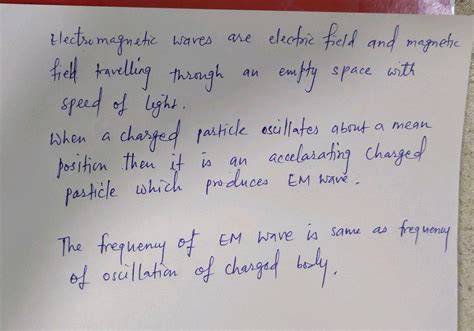 Electromagnetic waves are electric field and magnetic
field travelling through an empty space with
speed of light.
When a charged particle oscillates about a mean
position then it is an accelarating charged
particle which produces EM wave.
The frequency of EM wave is same as frequency
of oscillation of charged body.